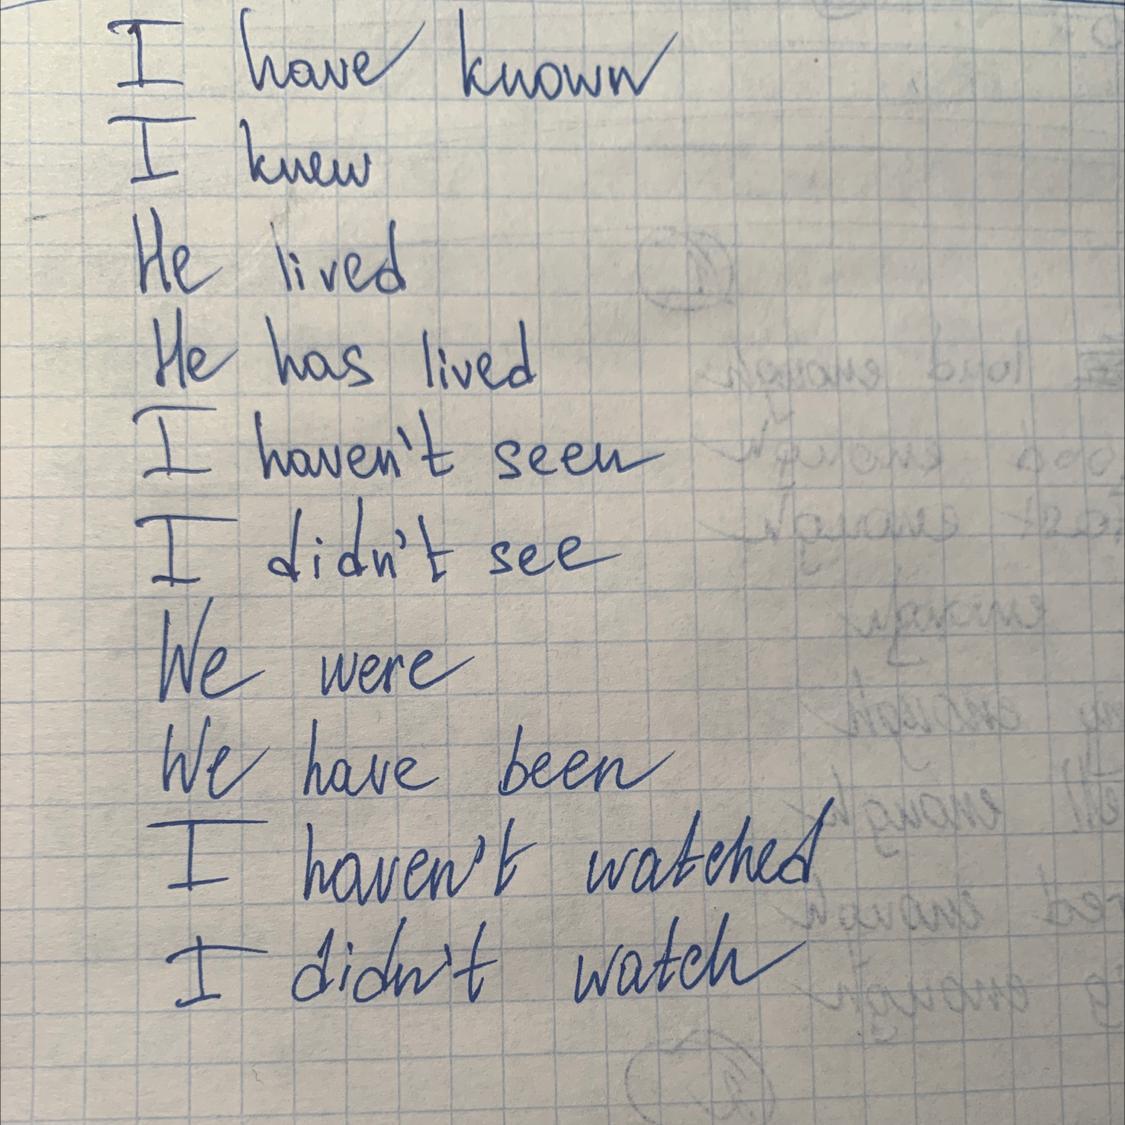 I have known
I knew
He lived
He has lived
I haven't seen
I didn't see
We were
We have been
I haven't watched
I didn't watch